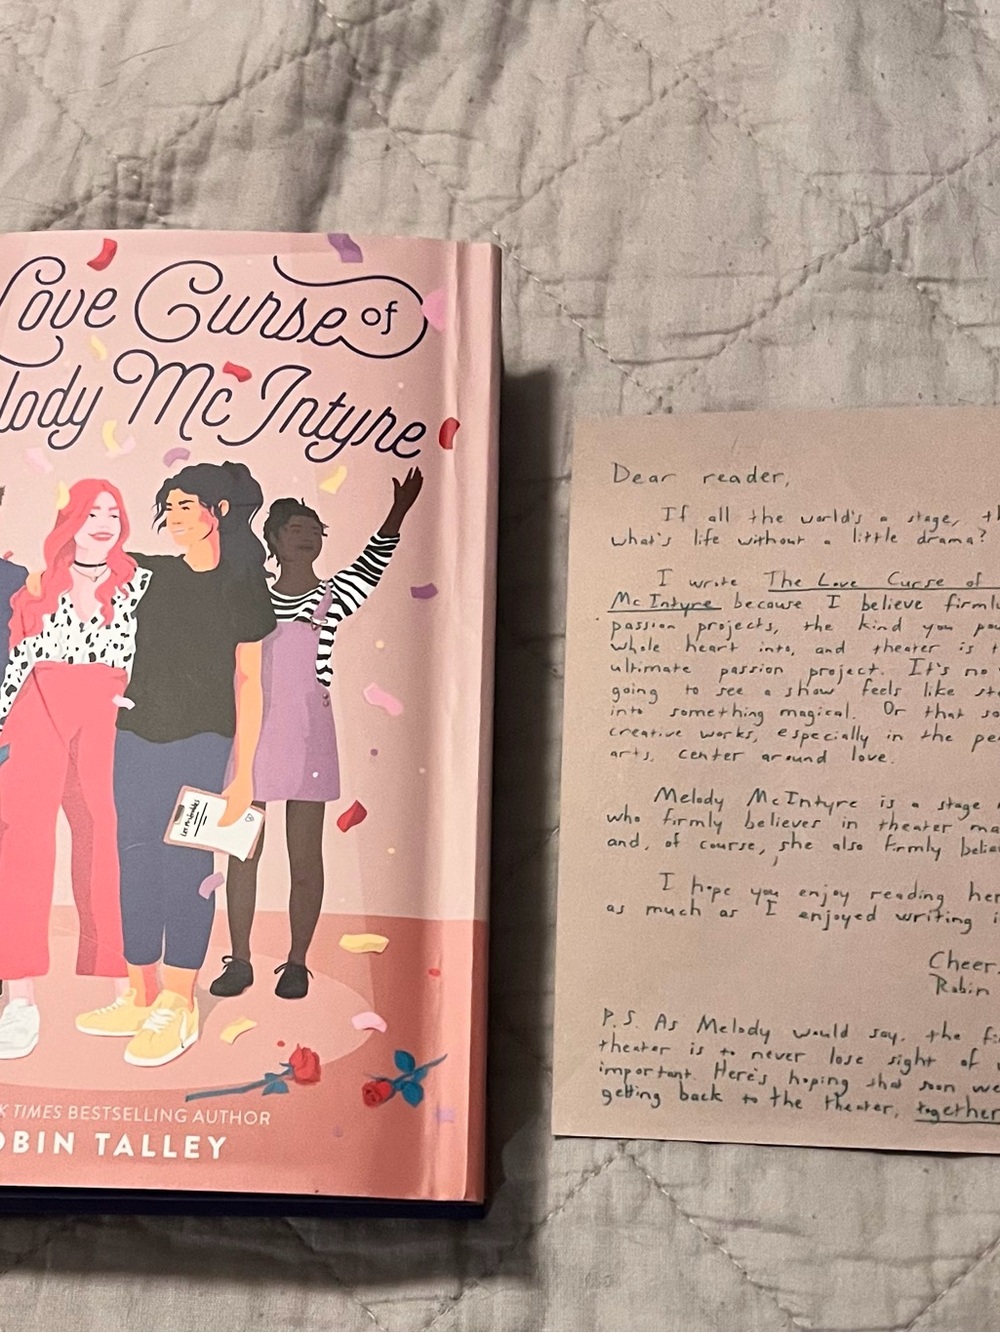 Love Curse of
lody McIntyre
Les Misérables
K TIMES BESTSELLING AUTHOR
OBIN TALLEY
Dear reader,
If all the world's a stage, th
what's life without a little drama?
I wrote The Love Curse of
McIntyre because I believe firml
passion projects, the kind you pou
whole heart into, and theater is t
ultimate passion project. It's no
going to see a show feels like st
into something magical. Or that so
creative works, especially in the pe
arts, center around love.
Melody McIntyre is a stage m
who firmly believes in theater ma
and, of course, she also firmly belie
I hope you enjoy reading her
as much as I enjoyed writing i
Cheers,
Robin
P.S. As Melody would say, the fi
theater is to never lose sight of w
important. Here's hoping that soon we
getting back to the theater, together